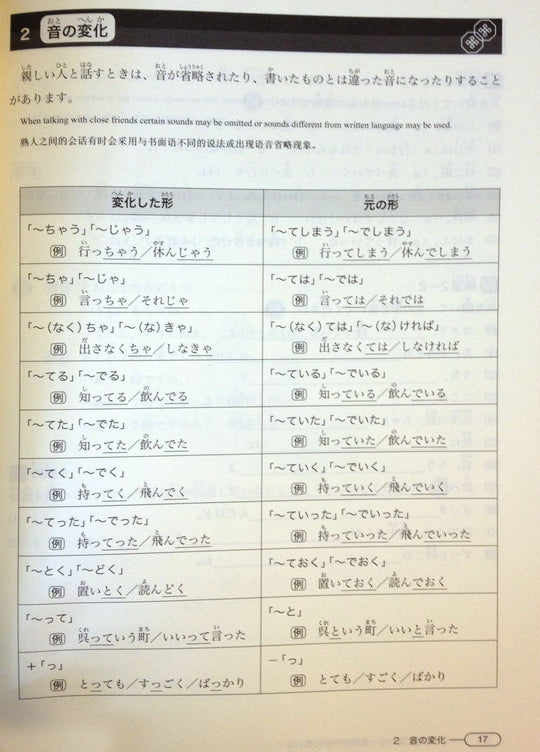 2 音の変化
親しい人と話すときは、音が省略されたり、書いたものとは違った音になったりすること
があります。
When talking with close friends certain sounds may be omitted or sounds different from written language may be used.
熟人之间的会话有时会采用与书面语不同的说法或出现语音省略现象。
変化した形 元の形
「～ちゃう」「～じゃう」 「～てしまう」「～でしまう」
例 行っちゃう／休んじゃう 例 行ってしまう／休んでしまう
「～ちゃ」「～じゃ」 「～ては」「～では」
例 言っちゃ／それじゃ 例 言っては／それでは
「～(なく)ちゃ」「～(な)きゃ」 「～(なく)ては」「～(な)ければ」
例 出さなくちゃ／しなきゃ 例 出さなくては／しなければ
「～てる」「～でる」 「～ている」「～でいる」
例 知ってる／飲んでる 例 知っている／飲んでいる
「～てた」「～でた」 「～ていた」「～でいた」
例 知ってた／飲んでた 例 知っていた／飲んでいた
「～てく」「～でく」 「～ていく」「～でいく」
例 持ってく／飛んでく 例 持っていく／飛んでいく
「～てった」「～でった」 「～ていった」「～でいった」
例 持ってった／飛んでった 例 持っていった／飛んでいった
「～とく」「～どく」 「～ておく」「～でおく」
例 置いとく／読んどく 例 置いておく／読んでおく
「～って」 「～と」
例 呉っていう町／いいって言った 例 呉という町／いいと言った
＋「っ」 －「っ」
例 とっても／すっごく／ばっかり 例 とても／すごく／ばかり
2 音の変化 17